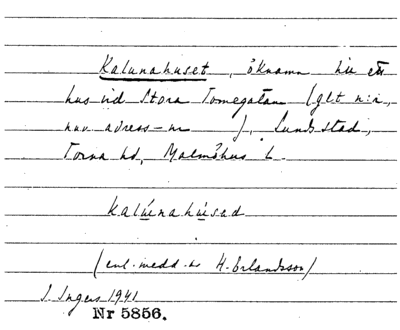 Kalunahuset, öknamn på ett
hus vid Stora Tomegatan (glt n:r,
nuv. adress-nr ), Lunds stad,
Torna hd, Malmöhus l.
kalúinahúsad
(enl. medd. av H. Erlandsson)
I. Ingers 1941
Nr 5856.